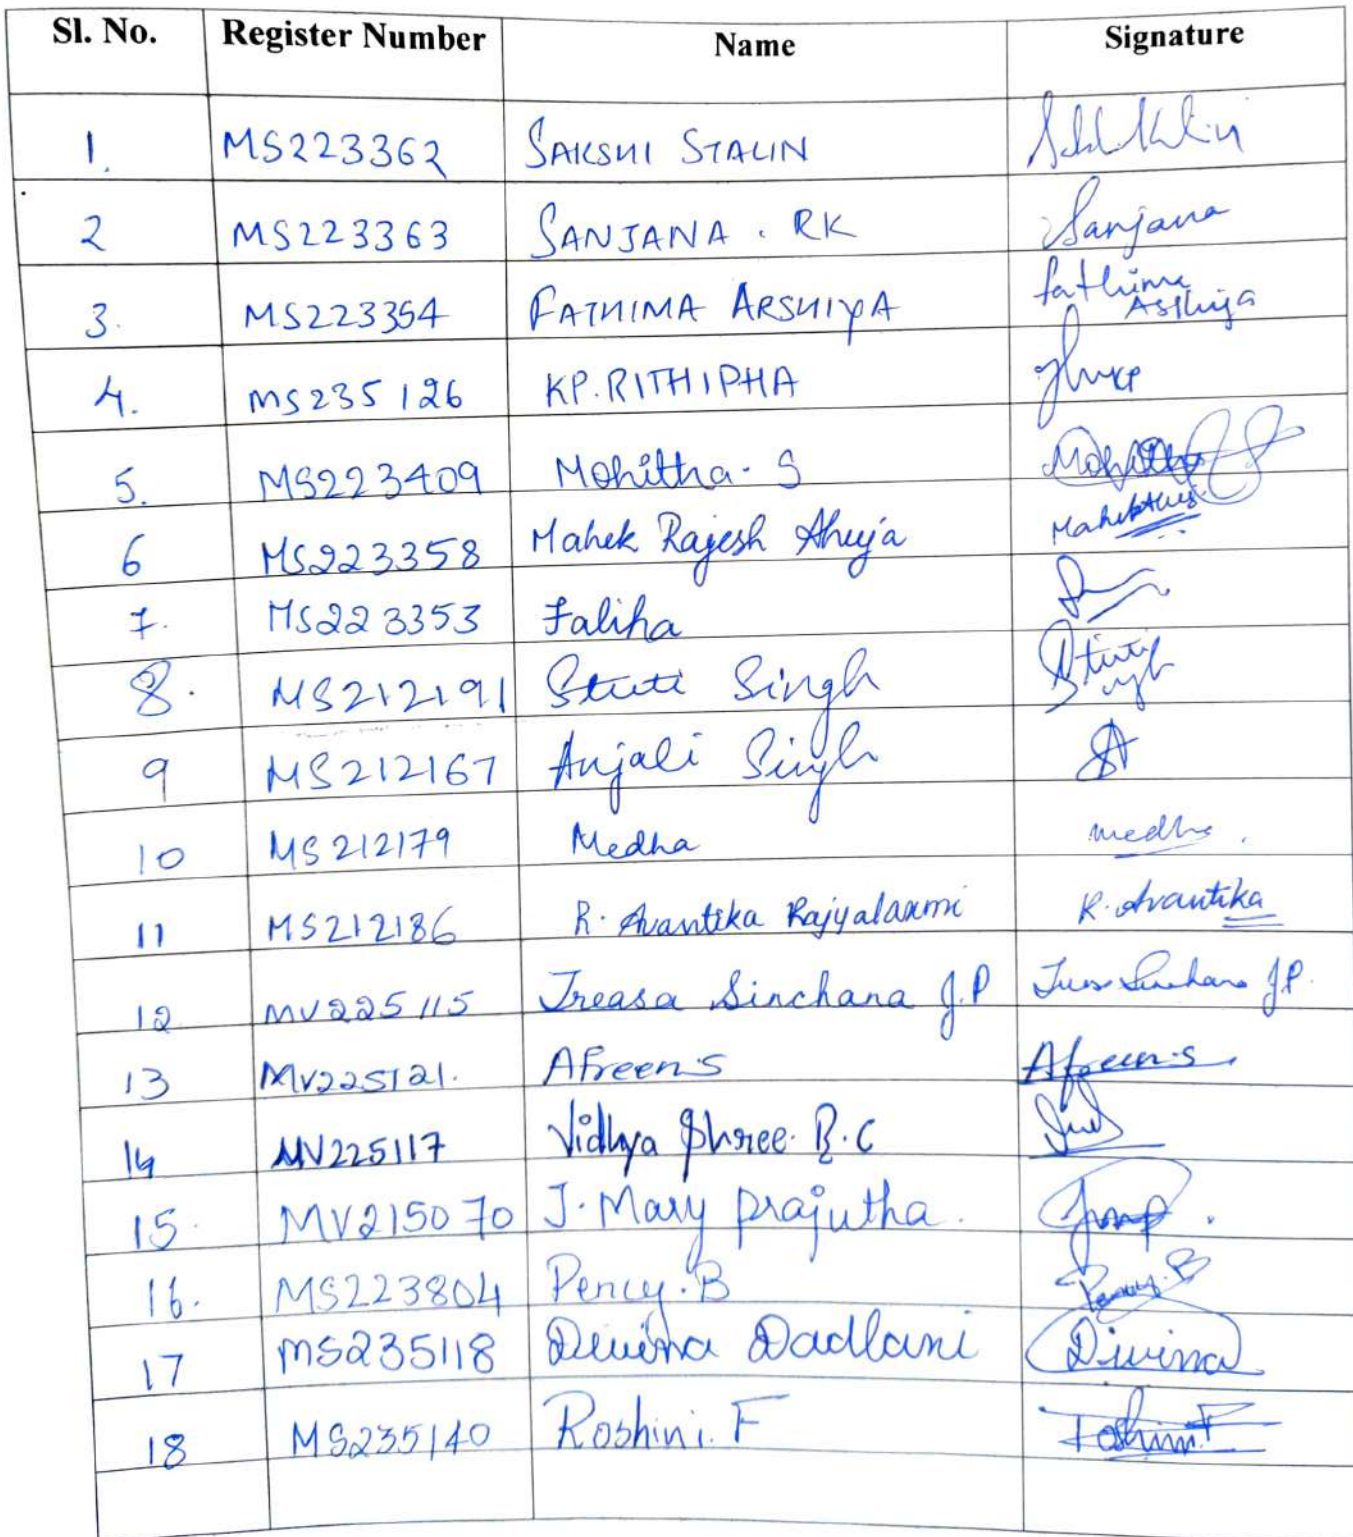 Sl. No. Register Number Name Signature
1. MS223362 SAKSHI STALIN
2 MS223363 SANJANA . RK Sanjana
3. MS223354 FATHIMA ARSHIYA fathima
Arshiya
4. MS235126 KP.RITHIPHA
5. MS223409 Mohitha. S Mohitha
6 MS223358 Mahek Rajesh Ahuja
7. MS223353 Faliha
8. MS212191 Stuti Singh Stuti
Singh
9 MS212167 Anjali Singh
10 MS212179 Medha medha.
11 MS212186 R. Avantika Rajyalaxmi R. Avantika
12 MV225115 Treasa Sinchana J.P Sinchana J.P.
13 MV225121. Afreen.S Afreen.S.
14 MV225117 Vidhya Shree. R.C
15. MV215070 J. Mary prajutha.
16. MS223804 Percy.B Percy.B
17 MS235118 Divina Dadlani Divina
18 MS235140 Roshini.F Roshini.F